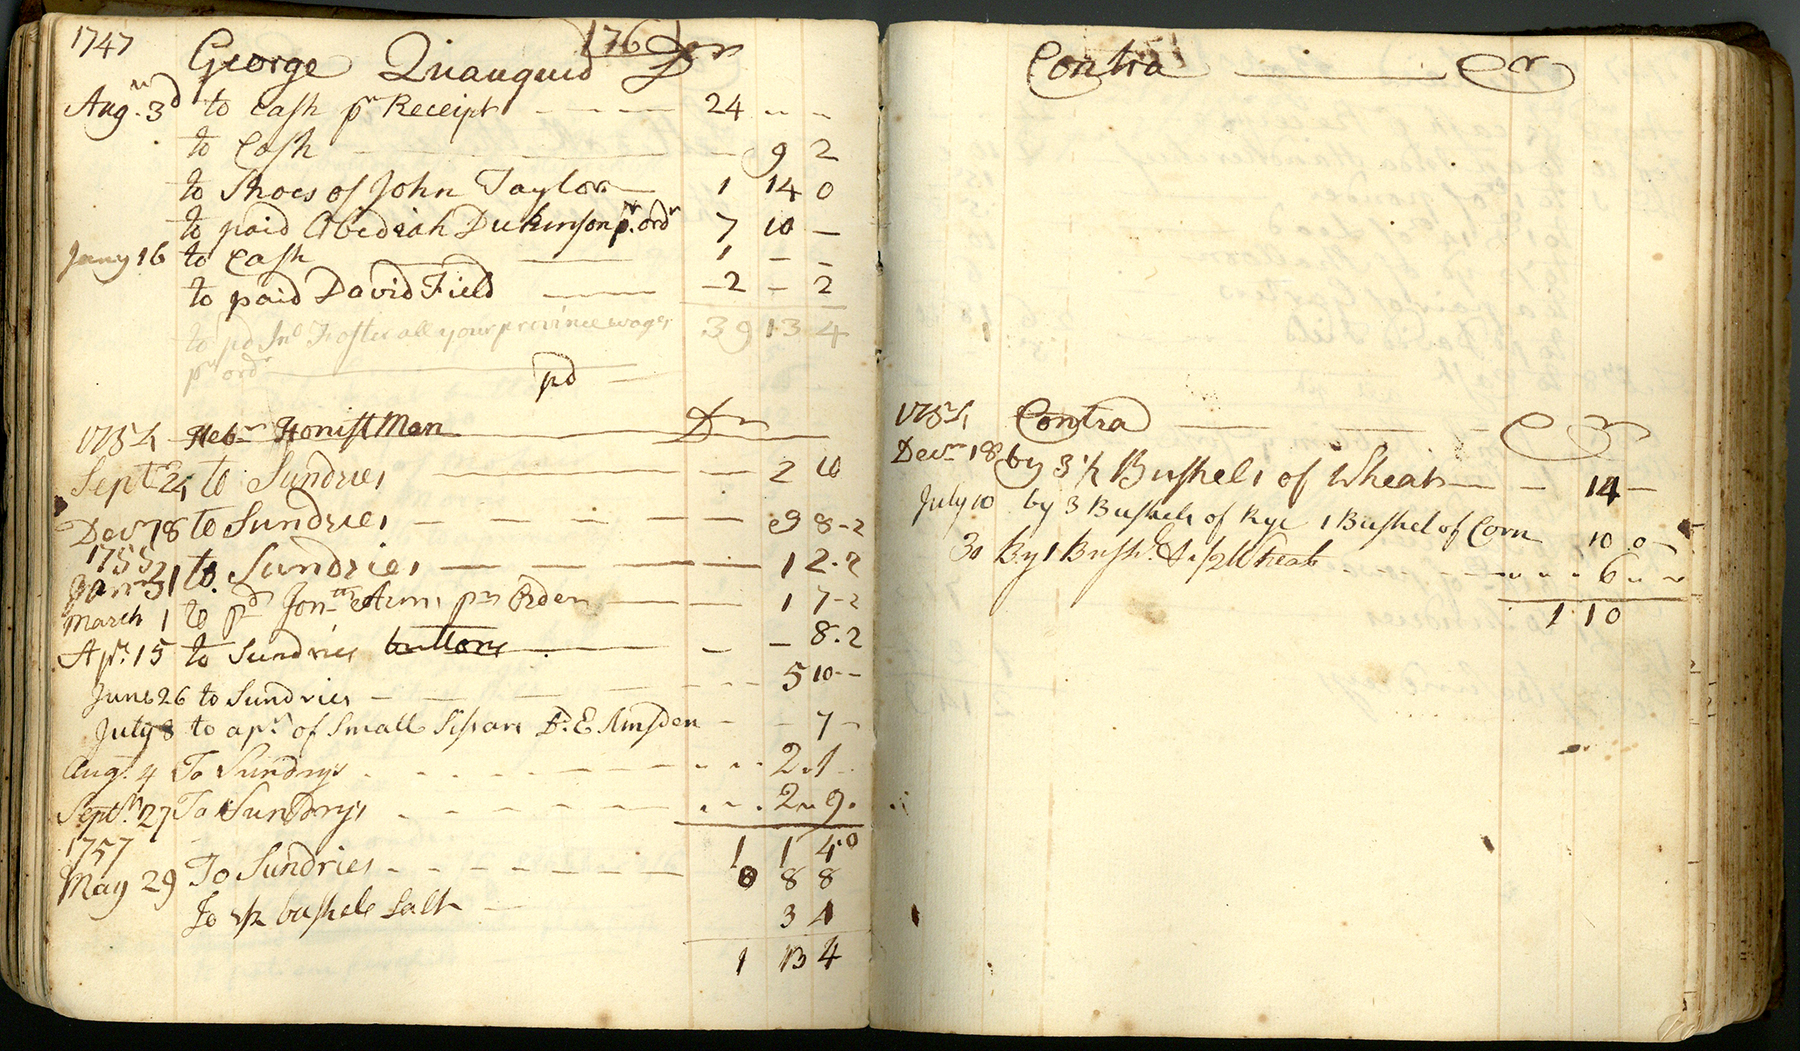 1747
George Quaquid 176 Dr
Augn. 3d to Cash pr Receipt 24 " "
to Cash 9 2
to Shoes of John Taylor 1 14 0
to paid Obediah Dickinson pr. ordr 7 10 —
Jany 16 to Cash 1 — —
to paid David Field 2 — 2
to pd Jno Foster all your province wages 39 13 4
pr ordr
pd
1754 Hebr Honist Man Dr
Sept 24 to Sundries 2 10
Decr 18 to Sundries 9 8-2
1755
Janr 31 to Sundries 1 2.2
March 1 to pd Jonth Arms pr Order 1 7-2
Apr. 15 to Sundries buttons 8.2
June 26 to Sundries 5 10--
July 8 to a pr. of Small Sissars Dd. E Amsden 7 -
Augt. 4 To Sundrys 2.1
Septr. 27 To Sundrys 2 " 9.
1 1 4 0
1757
May 29 To Sundries 0 8 8
To 1/2 bushele Salt 3 4
1 13 4
Contra Cr
1754 Contra Cr
Decr 18 by 3 1/2 Bushels of Wheat 14 —
July 10 by 3 Bushels of Rye 1 Bushel of Corn 10 0
30 By 1 Bushl. & 1/2 Wheat 6 " "
1 10